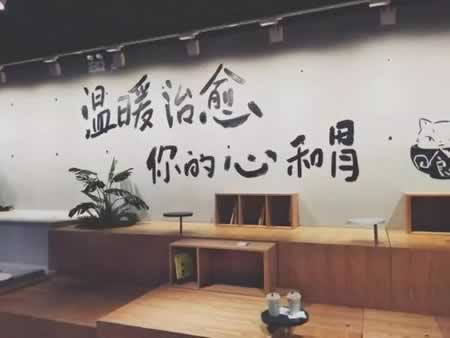 温暖治愈
你的心和胃
食